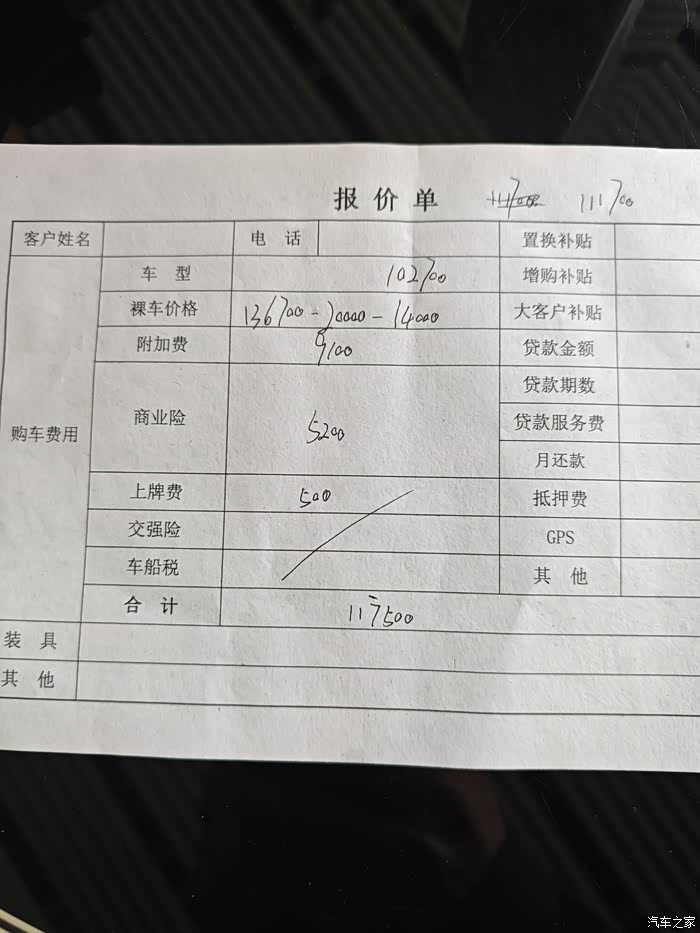 报价单 111700
客户姓名 电话 置换补贴
车型 102700 增购补贴
裸车价格 136700-20000-14000 大客户补贴
附加费 9100 贷款金额
贷款期数
购车费用 商业险 5200 贷款服务费
月还款
上牌费 500 抵押费
交强险 GPS
车船税 其他
合计 117500
装具
其他
汽车之家